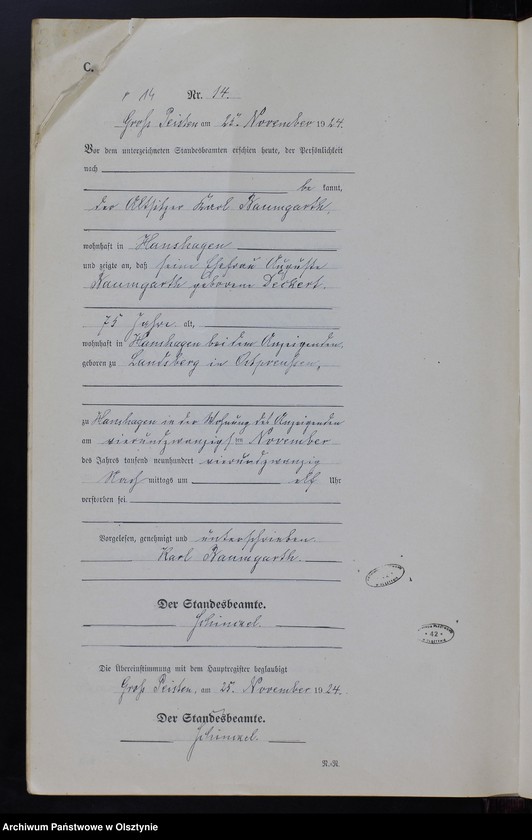 C.
14 Nr. 14.
Groß Peisten am 25ten November 1924.
Vor dem unterzeichneten Standesbeamten erschien heute, der Persönlichkeit
nach
be kannt,
der Altsitzer Karl Baumgarth,
wohnhaft in Hanshagen
und zeigte an, daß seine Ehefrau Auguste
Baumgarth geborene Deckert,
75 Jahre alt,
wohnhaft in Hanshagen bei dem Anzeigenden
geboren zu Landsberg in Ostpreußen,
zu Hanshagen in der Wohnung des Anzeigenden
am vierundzwanzigsten November
des Jahres tausend neunhundert vierundzwanzig
Nach mittags um elf Uhr
verstorben sei.
Vorgelesen, genehmigt und unterschrieben
Karl Baumgarth.
Der Standesbeamte.
Schimmel.
Die Übereinstimmung mit dem Hauptregister beglaubigt
Groß Peisten, am 25. November 1924.
Der Standesbeamte.
Schimmel.
42
R.-R.
Archiwum Państwowe w Olsztynie